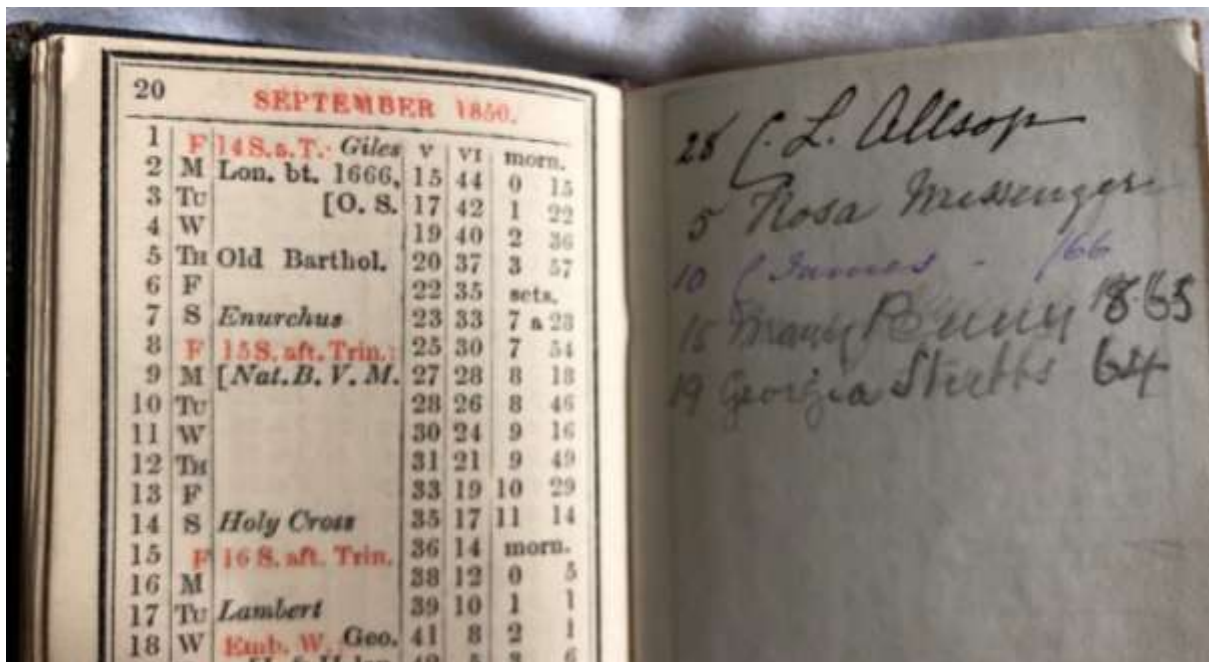 20
SEPTEMBER 1850.
1 F 14 S. a. T.: Giles v VI morn.
2 M Lon. bt. 1666, 15 44 0 15
3 TU [O. S. 17 42 1 22
4 W 19 40 2 36
5 TH Old Barthol. 20 37 3 57
6 F 22 35 sets.
7 S Enurchus 23 33 7 a 28
8 F 15 S. aft. Trin.: 25 30 7 54
9 M [Nat. B. V. M. 27 28 8 18
10 TU 28 26 8 46
11 W 30 24 9 16
12 TH 31 21 9 49
13 F 33 19 10 29
14 S Holy Cross 35 17 11 14
15 F 16 S. aft. Trin. 36 14 morn.
16 M 38 12 0 5
17 TU Lambert 39 10 1 1
18 W Emb. W. Geo. 41 8 2 1
28 C. L. Allsop
5 Rosa Messenger
10 166
15 Penny 1865
19 Georgia Stubbs 64